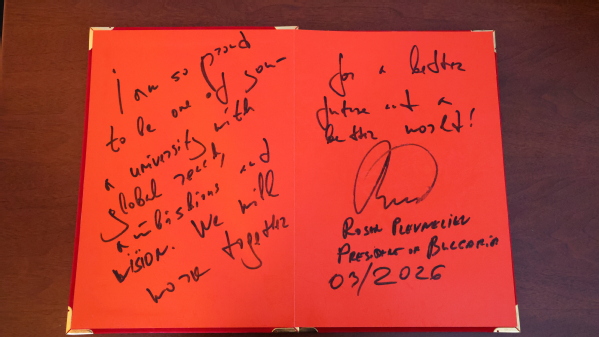 I am so proud
to be one of you -
a university with
global reach,
ambitions and
vision. We will
work together
for a better
future and a
better world!
Rosen Plevneliev
President of Bulgaria
03/2026